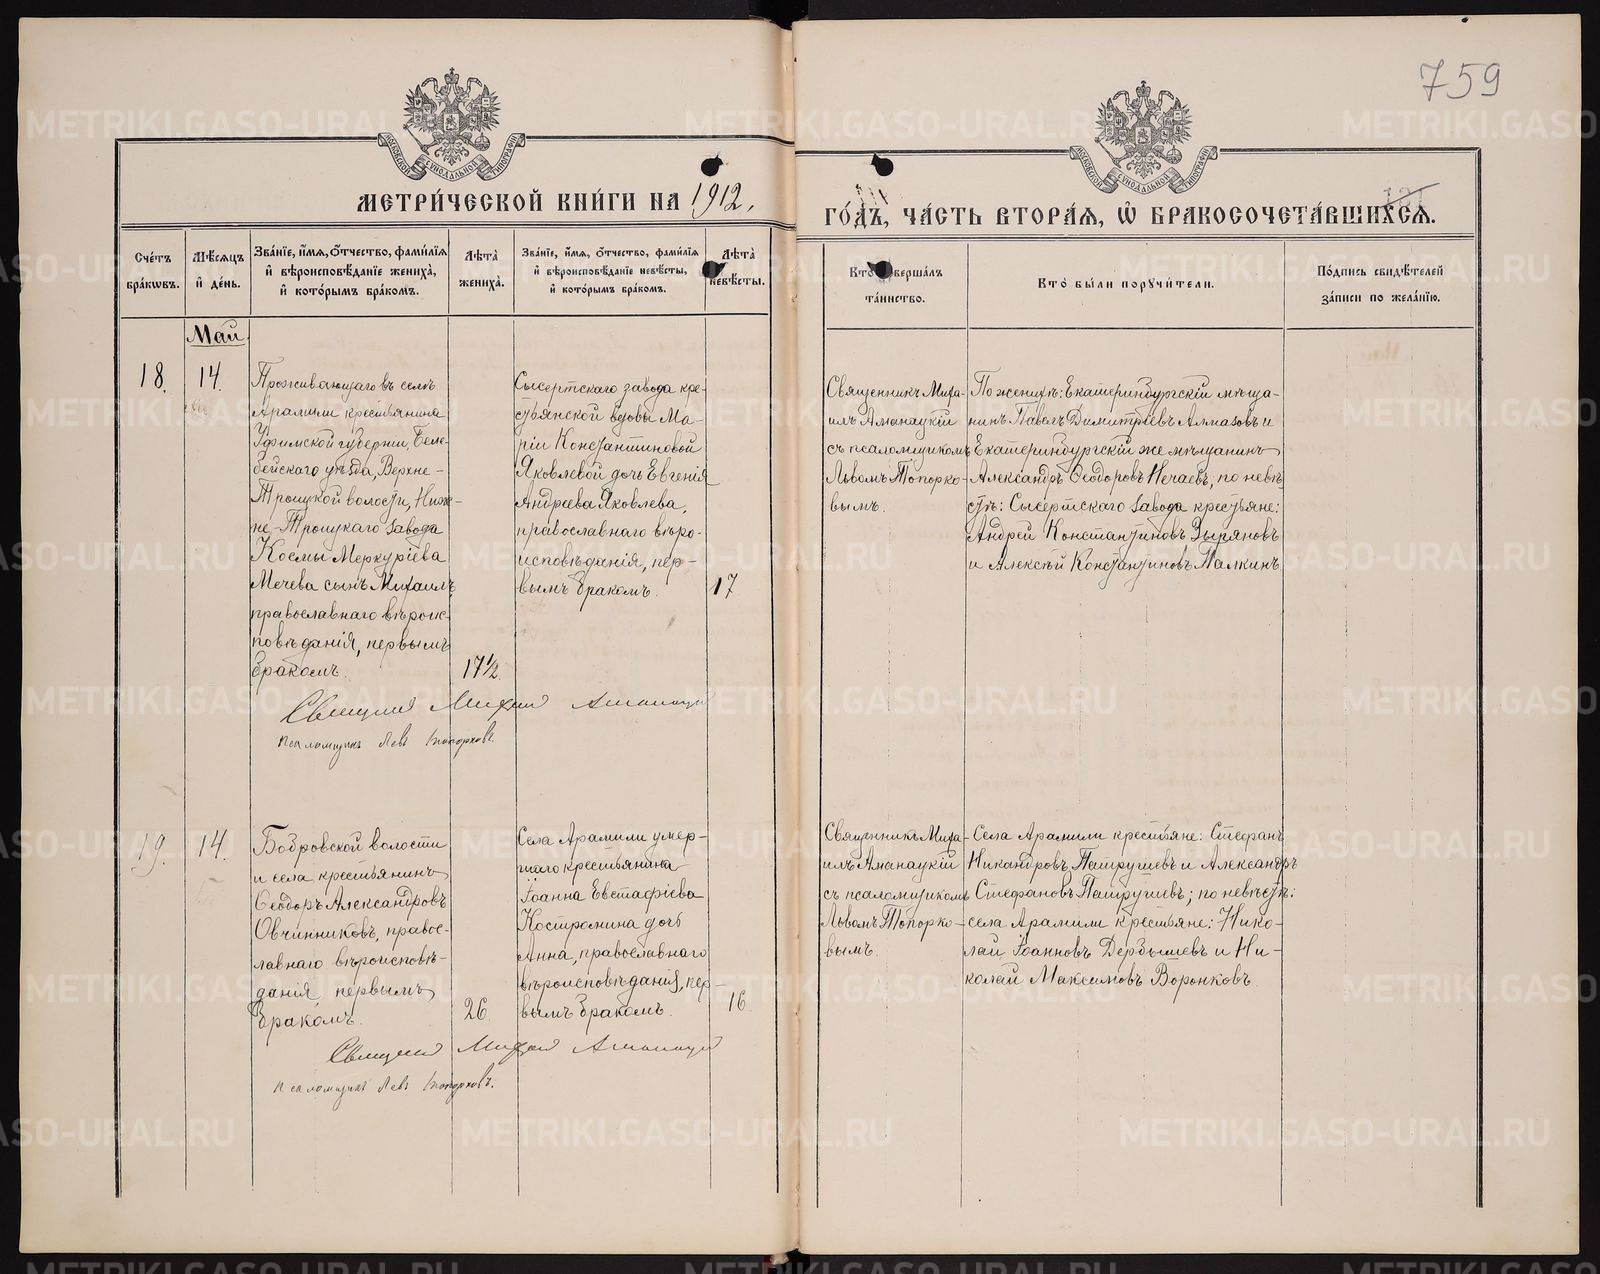 759
МОСКОВСКОЙ СѴНОДАЛЬНОЙ ТИПОГРАФІИ
МОСКОВСКОЙ СѴНОДАЛЬНОЙ ТИПОГРАФІИ
МЕТРИ́ЧЕСКОЙ КНИ́ГИ НА 1912.
ГО́ДЪ, ЧА́СТЬ ВТОРА́Я, Ѽ БРАКОСОЧЕТА́ВШИХСЯ.
Сче́тъ бра́кѡвъ.
Мѣ́сяцъ и҆ де́нь.
Зва́нїе, и҆́мя, ѻ҆́тчество, фами́лїя и҆ вѣроисповѣ́данїе жениха̀, и҆ кото́рымъ бра́комъ.
Лѣ́та жениха̀.
Зва́нїе, и҆́мя, ѻ҆́тчество, фами́лїя и҆ вѣроисповѣ́данїе невѣ́сты, и҆ кото́рымъ бра́комъ.
Лѣ́та невѣ́сты.
Кто̀ соверша́лъ та́инство.
Кто̀ бы́ли поручи́тели.
По́дпись свидѣ́телей за́писи по жела́нїю.
Май
18.
14.
Проживающаго въ селѣ
Арамили крестьянина
Уфимской губерніи, Беле-
бейскаго уѣзда, Верхне-
Троицкой волости, Ниж-
не-Троицкаго завода
Космы Меркуріева
Мечева сынъ Михаилъ,
православнаго вѣроис-
повѣданія, первымъ
бракомъ.
17½
Сысертскаго завода кре-
стьянской вдовы Ма-
ріи Константиновой
Яковлевой дочь Евгенія
Андреева Яковлева,
православнаго вѣро-
исповѣданія, пер-
вымъ бракомъ.
17
Священникъ Миха-
илъ Аманацкій
съ псаломщикомъ
Львомъ Топорко-
вымъ.
По женихѣ: Екатеринбургскій мѣща-
нинъ Павелъ Димитріевъ Алмазовъ и
Екатеринбургскій же мѣщанинъ
Александръ Ѳеодоровъ Нечаевъ, по невѣ-
стѣ: Сысертскаго завода крестьяне:
Андрей Константиновъ Зыряновъ
и Алексѣй Константиновъ Палкинъ
Священникъ Михаилъ Аманацкій
Псаломщикъ Левъ Топорковъ.
19.
14.
Бобровской волости
и села крестьянинъ
Ѳеодоръ Александровъ
Овчинниковъ, право-
славнаго вѣроисповѣ-
данія, первымъ
бракомъ.
26.
Села Арамили умер-
шаго крестьянина
Іоанна Евстафіева
Костромина дочь
Анна, православнаго
вѣроисповѣданія, пер-
вымъ бракомъ.
16
Священникъ Миха-
илъ Аманацкій
съ псаломщикомъ
Львомъ Топорко-
вымъ.
Села Арамили крестьяне: Стефанъ
Никандровъ Патрушевъ и Александръ
Стефановъ Патрушевъ; по невѣстѣ:
села Арамили крестьяне: Нико-
лай Іоанновъ Дербышевъ и Ни-
колай Максимовъ Воронковъ.
Священникъ Михаилъ Аманацкій
Псаломщикъ Левъ Топорковъ.
METRIKI.GASO-URAL.RU